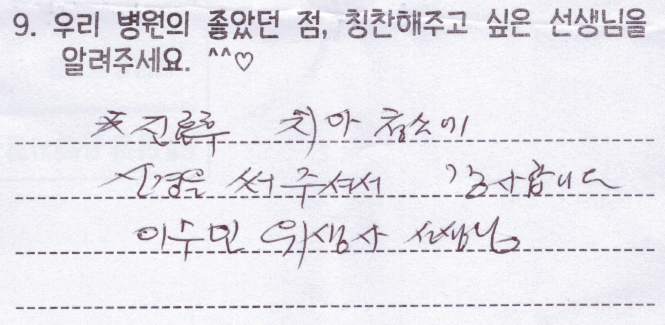 9. 우리 병원의 좋았던 점, 칭찬해주고 싶은 선생님을
알려주세요. ^^♡
* 진료후 치아 청소에
신경을 써 주셔서 감사합니다
이수민 위생사 선생님